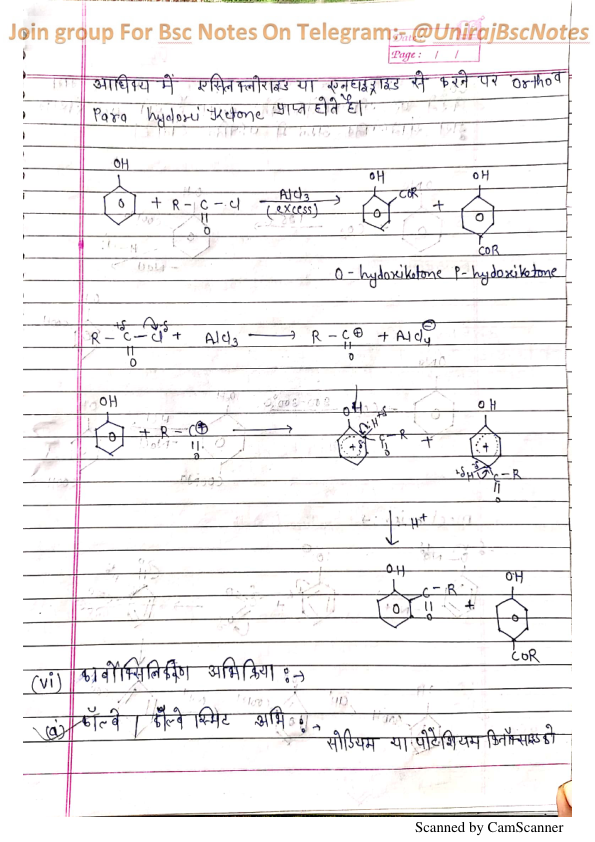 Join group For Bsc Notes On Telegram:- @UnirajBscNotes
Page: / /
आधिक्य में एसिलक्लोराइड या एनहाइड्राइड से करने पर Ortho व
Para hydoxi Ketone प्राप्त होते है।
OH OH OH
+ R - C - Cl AlCl3 COR +
O (excess)
COR
O - hydoxiketone P - hydoxiketone
R - C - Cl + AlCl3 R - C⊕ + AlCl4⊖
O O
OH OH OH
+ R - C⊕ H C R +
O O
H C - R
O
- H+
OH C - R OH
O +
COR
(vi) कार्बोक्सिलिकरण अभिक्रिया :→
(a) कॉल्बे / कॉल्बे स्मिट अभि :→
सोडियम या पोटेशियम फिनॉक्साइड को
Scanned by CamScanner